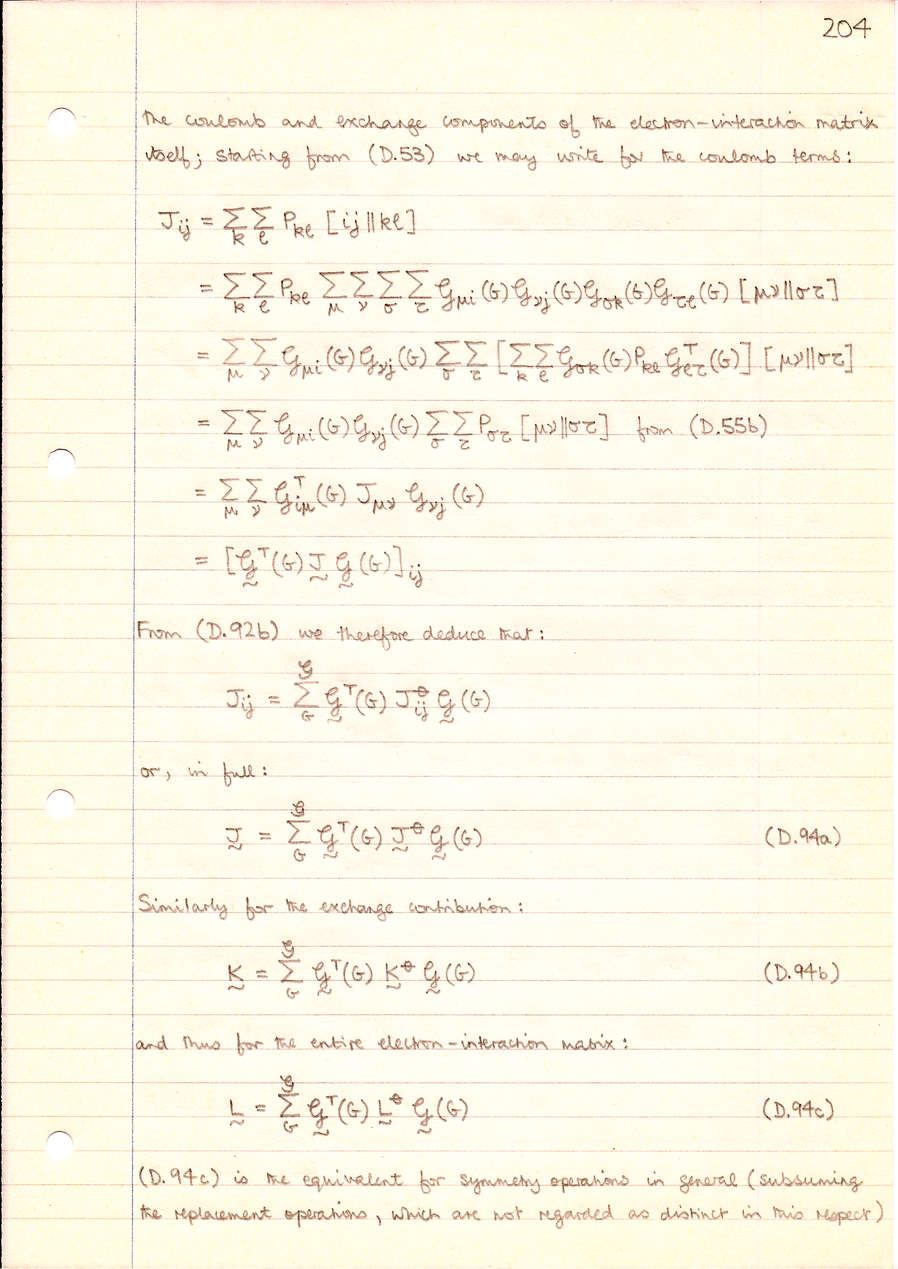 204
the coulomb and exchange components of the electron-interaction matrix
itself; starting from (D.53) we may write for the coulomb terms:
J_ij = Σ_k Σ_ℓ P_kℓ [ij‖kℓ]
= Σ_k Σ_ℓ P_kℓ Σ_μ Σ_ν Σ_σ Σ_τ 𝒢_μi(G) 𝒢_νj(G) 𝒢_σk(G) 𝒢_τℓ(G) [μν‖στ]
= Σ_μ Σ_ν 𝒢_μi(G) 𝒢_νj(G) Σ_σ Σ_τ [Σ_k Σ_ℓ 𝒢_σk(G) P_kℓ 𝒢^T_ℓτ(G)] [μν‖στ]
= Σ_μ Σ_ν 𝒢_μi(G) 𝒢_νj(G) Σ_σ Σ_τ P_στ [μν‖στ] from (D.55b)
= Σ_μ Σ_ν 𝒢^T_iμ(G) J_μν 𝒢_νj(G)
= [𝒢^T(G) J 𝒢(G)]_ij
From (D.92b) we therefore deduce that:
J_ij = Σ_G^𝒢 𝒢^T(G) J^θ_ij 𝒢(G)
or, in full:
J = Σ_G^𝒢 𝒢^T(G) J^θ 𝒢(G) (D.94a)
Similarly for the exchange contribution:
K = Σ_G^𝒢 𝒢^T(G) K^θ 𝒢(G) (D.94b)
and thus for the entire electron-interaction matrix:
L = Σ_G^𝒢 𝒢^T(G) L^θ 𝒢(G) (D.94c)
(D.94c) is the equivalent for symmetry operations in general (subsuming
the replacement operations, which are not regarded as distinct in this respect)